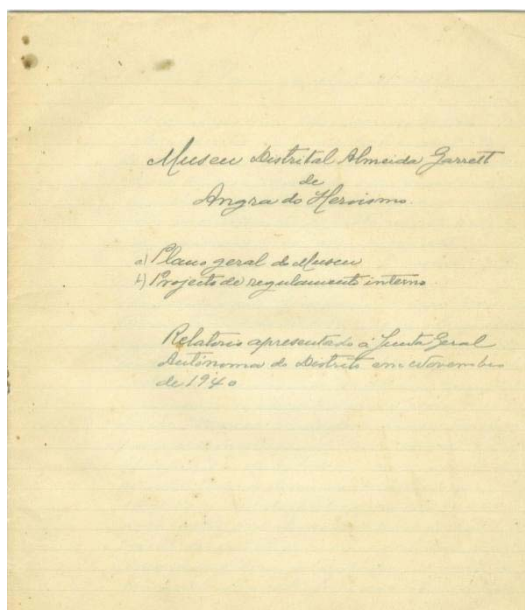 Museu Distrital Almeida Garrett
de
Angra do Heroismo.
a) Plano geral do Museu
b) Projecto de regulamento interno
Relatorio apresentado á Junta Geral
Autónoma do Distrito em Novembro
de 1940